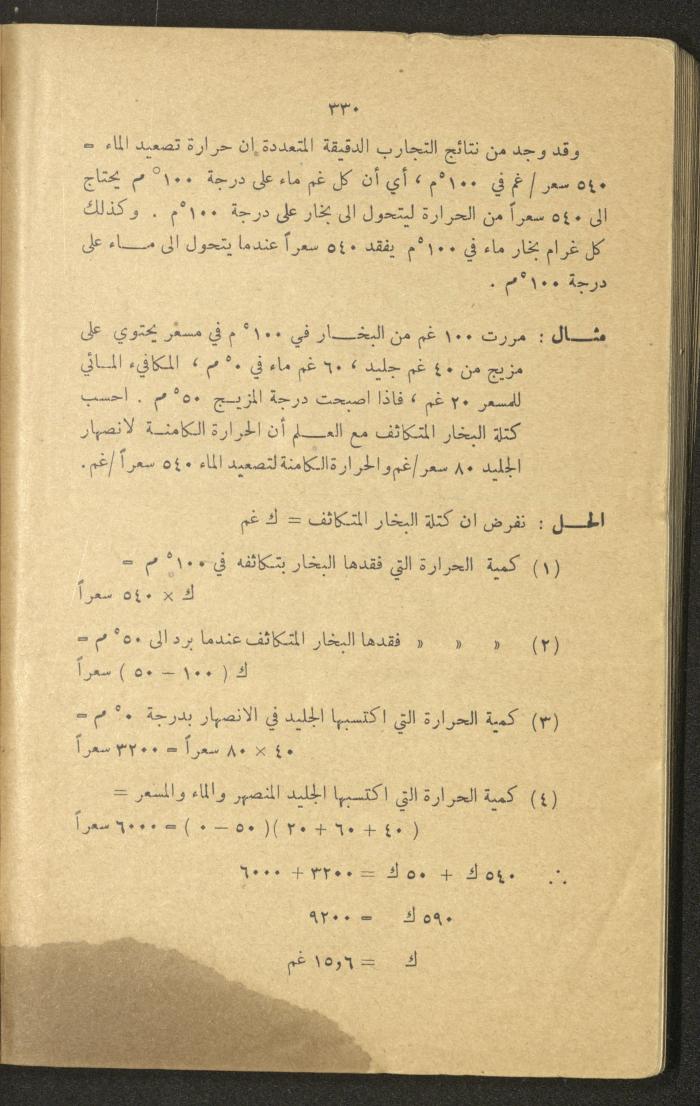 ٣٣٠
وقد وجد من نتائج التجارب الدقيقة المتعددة ان حرارة تصعيد الماء =
٥٤٠ سعر / غم في ١٠٠°م ، أي أن كل غم ماء على درجة ١٠٠° م يحتاج
الى ٥٤٠ سعراً من الحرارة ليتحول الى بخار على درجة ١٠٠°م . وكذلك
كل غرام بخار ماء في ١٠٠°م يفقد ٥٤٠ سعراً عندما يتحول الى مــاء على
درجة ١٠٠°م .
مثــال : مررت ١٠٠ غم من البخــار في ١٠٠° م في مسعر يحتوي على
مزيج من ٤٠ غم جليد ، ٦٠ غم ماء في ٠° م ، المكافيء المــائي
للمسعر ٢٠ غم ، فاذا اصبحت درجة المزيــج ٥٠° م . احسب
كتلة البخار المتكاثف مع العــلم أن الحرارة الكامنــة لانصهار
الجليد ٨٠ سعر/غم والحرارة الكامنة لتصعيد الماء ٥٤٠ سعراً/غم .
الحــل : نفرض ان كتلة البخار المتكاثف = ك غم
(١) كمية الحرارة التي فقدها البخار بتكاثفه في ١٠٠° م =
ك × ٥٤٠ سعراً
(٢) » » » فقدها البخار المتكاثف عندما برد الى ٥٠° م =
ك ( ١٠٠ − ٥٠ ) سعراً
(٣) كمية الحرارة التي اكتسبها الجليد في الانصهار بدرجة ٠° م =
٤٠ × ٨٠ سعراً = ٣٢٠٠ سعراً
(٤) كمية الحرارة التي اكتسبها الجليد المنصهر والماء والمسعر =
( ٤٠ + ٦٠ + ٢٠ )( ٥٠ − ٠ ) = ٦٠٠٠ سعراً
∴ ٥٤٠ ك + ٥٠ ك = ٣٢٠٠ + ٦٠٠٠
٥٩٠ ك = ٩٢٠٠
ك = ١٥٫٦ غم